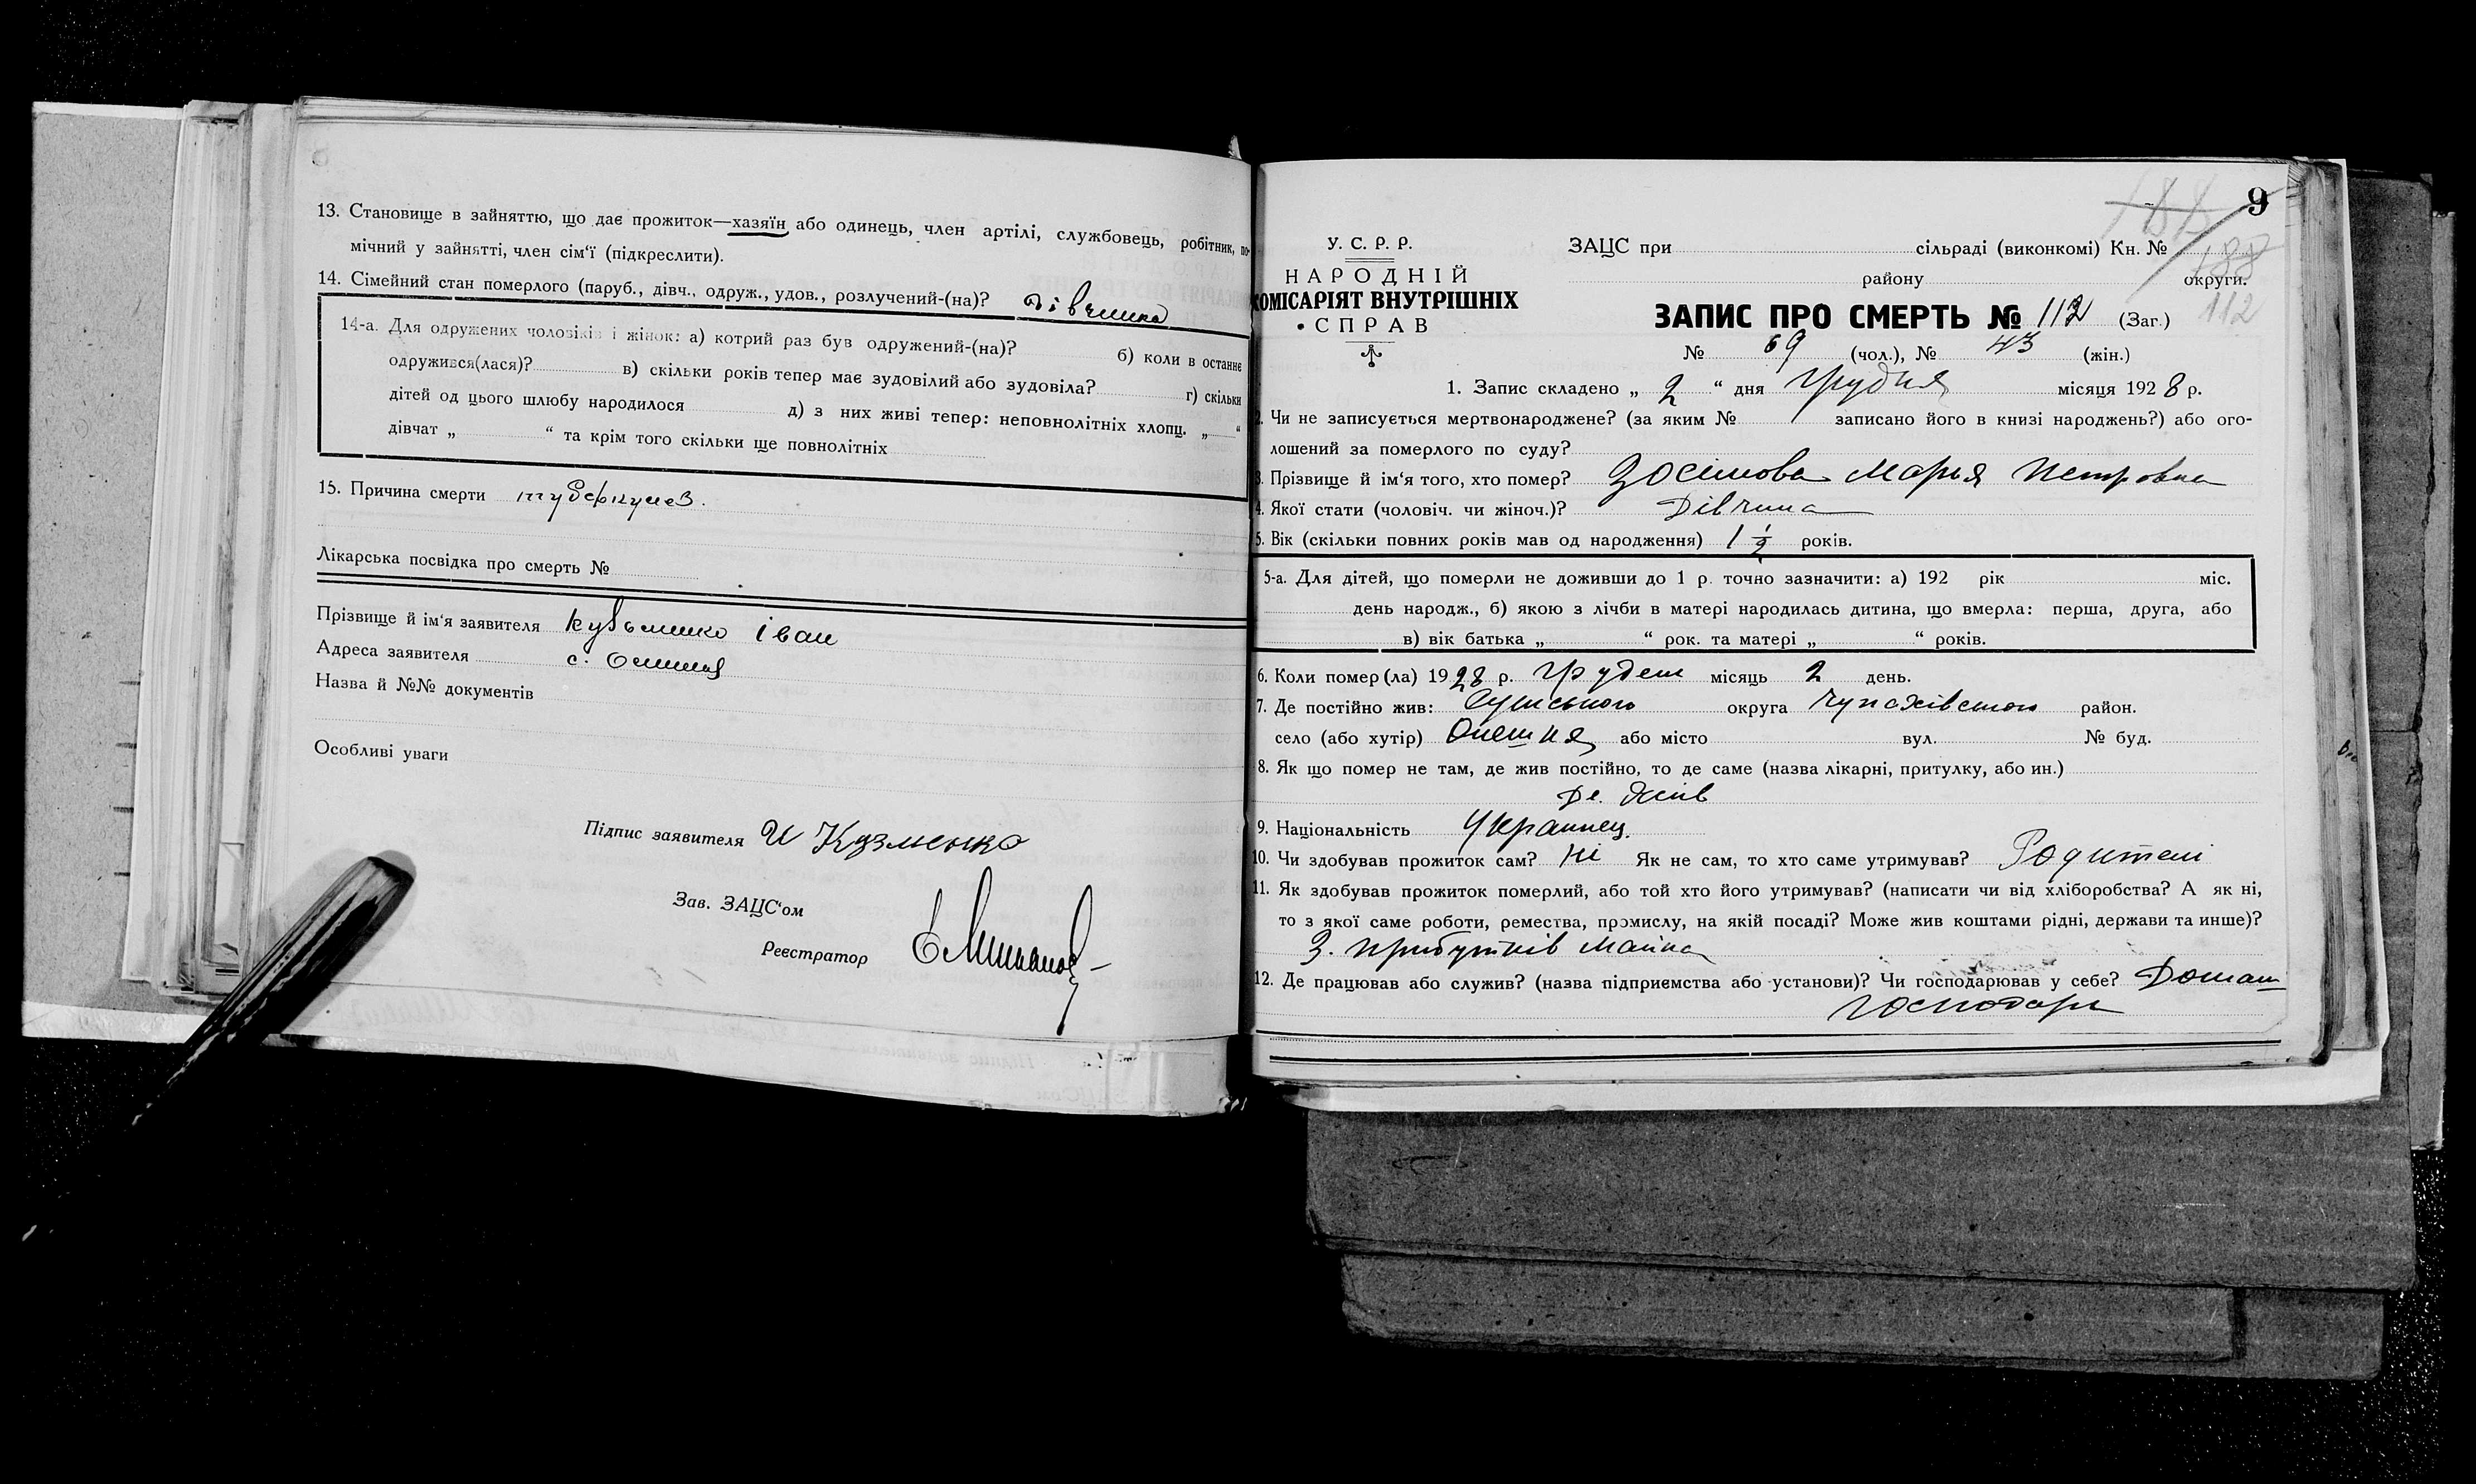 13. Становище в зайняттю, що дає прожиток—хазяїн або одинець, член артілі, службовець, робітник, по-
мічний у зайнятті, член сім‘ї (підкреслити).
14. Сімейний стан померлого (паруб., дівч., одруж., удов., розлучений-(на)? дівчинка
14-а. Для одружених чоловіків і жінок: а) котрий раз був одружений-(на)? б) коли в останнє
одружився(лася)? в) скільки років тепер має зудовілий або зудовіла? г) скільки
дітей од цього шлюбу народилося д) з них живі тепер: неповнолітніх хлопц. „ “
дівчат „ “ та крім того скільки ще повнолітніх
15. Причина смерти туберкульоз.
Лікарська посвідка про смерть №
Прізвище й ім‘я заявителя Кузьменко Іван
Адреса заявителя с. Олешня
Назва й №№ документів
Особливі уваги
Підпис заявителя И Кузменко
Зав. ЗАЦС‘ом
Реєстратор
9
188
188
112
У. С. Р. Р.
НАРОДНІЙ
КОМІСАРІЯТ ВНУТРІШНІХ
СПРАВ
ЗАЦС при сільраді (виконкомі) Кн. №
району округи.
ЗАПИС ПРО СМЕРТЬ № 112 (Заг.)
№ 69 (чол.), № 43 (жін.)
1. Запис складено „ 2 “ дня Грудня місяця 1928 р.
2. Чи не записується мертвонароджене? (за яким № записано його в книзі народжень?) або ого-
лошений за померлого по суду?
3. Прізвище й ім‘я того, хто помер? Зосімова Марья Петровна
4. Якої стати (чоловіч. чи жіноч.)? Дівчина
5. Вік (скільки повних років мав од народження) 1 1/2 років.
5-а. Для дітей, що померли не доживши до 1 р. точно зазначити: а) 192 рік міс.
день народж., б) якою з лічби в матері народилась дитина, що вмерла: перша, друга, або
в) вік батька „ “ рок. та матері „ “ років.
6. Коли помер(ла) 1928 р. Грудень місяць 2 день.
7. Де постійно жив: Сумського округа Чупахівського район.
село (або хутір) Олешня або місто вул. № буд.
8. Як що помер не там, де жив постійно, то де саме (назва лікарні, притулку, або ин.)
Де жив
9. Національність Украинец.
10. Чи здобував прожиток сам? Ні Як не сам, то хто саме утримував? Родителі
11. Як здобував прожиток померлий, або той хто його утримував? (написати чи від хліборобства? А як ні,
то з якої саме роботи, ремества, промислу, на якій посаді? Може жив коштами рідні, держави та инше)?
З. прибутків майна
12. Де працював або служив? (назва підприємства або установи)? Чи господарював у себе? Домаш
господар